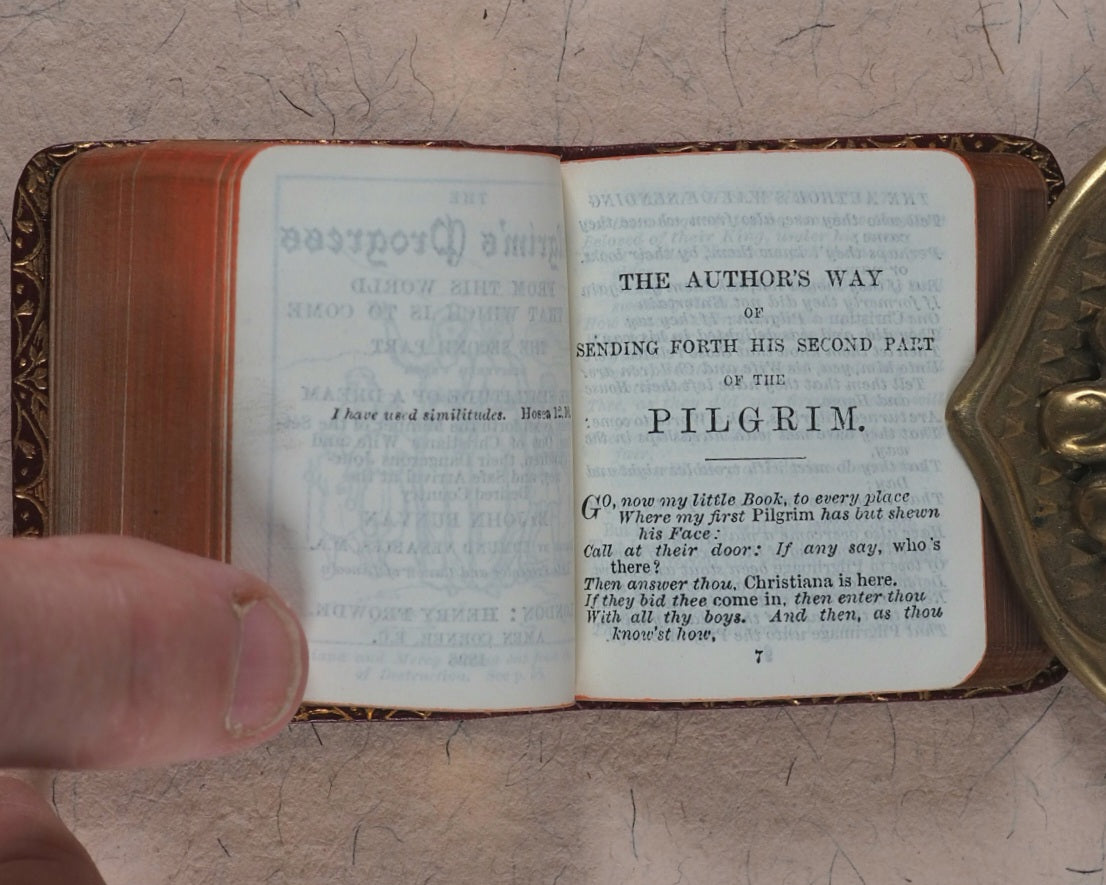 I have used similitudes. Hosea 12.10.
THE AUTHOR'S WAY
OF
SENDING FORTH HIS SECOND PART
OF THE
PILGRIM.
GO, now my little Book, to every place
Where my first Pilgrim has but shewn
his Face:
Call at their door: If any say, who's
there?
Then answer thou, Christiana is here.
If they bid thee come in, then enter thou
With all thy boys. And then, as thou
know'st how,
7